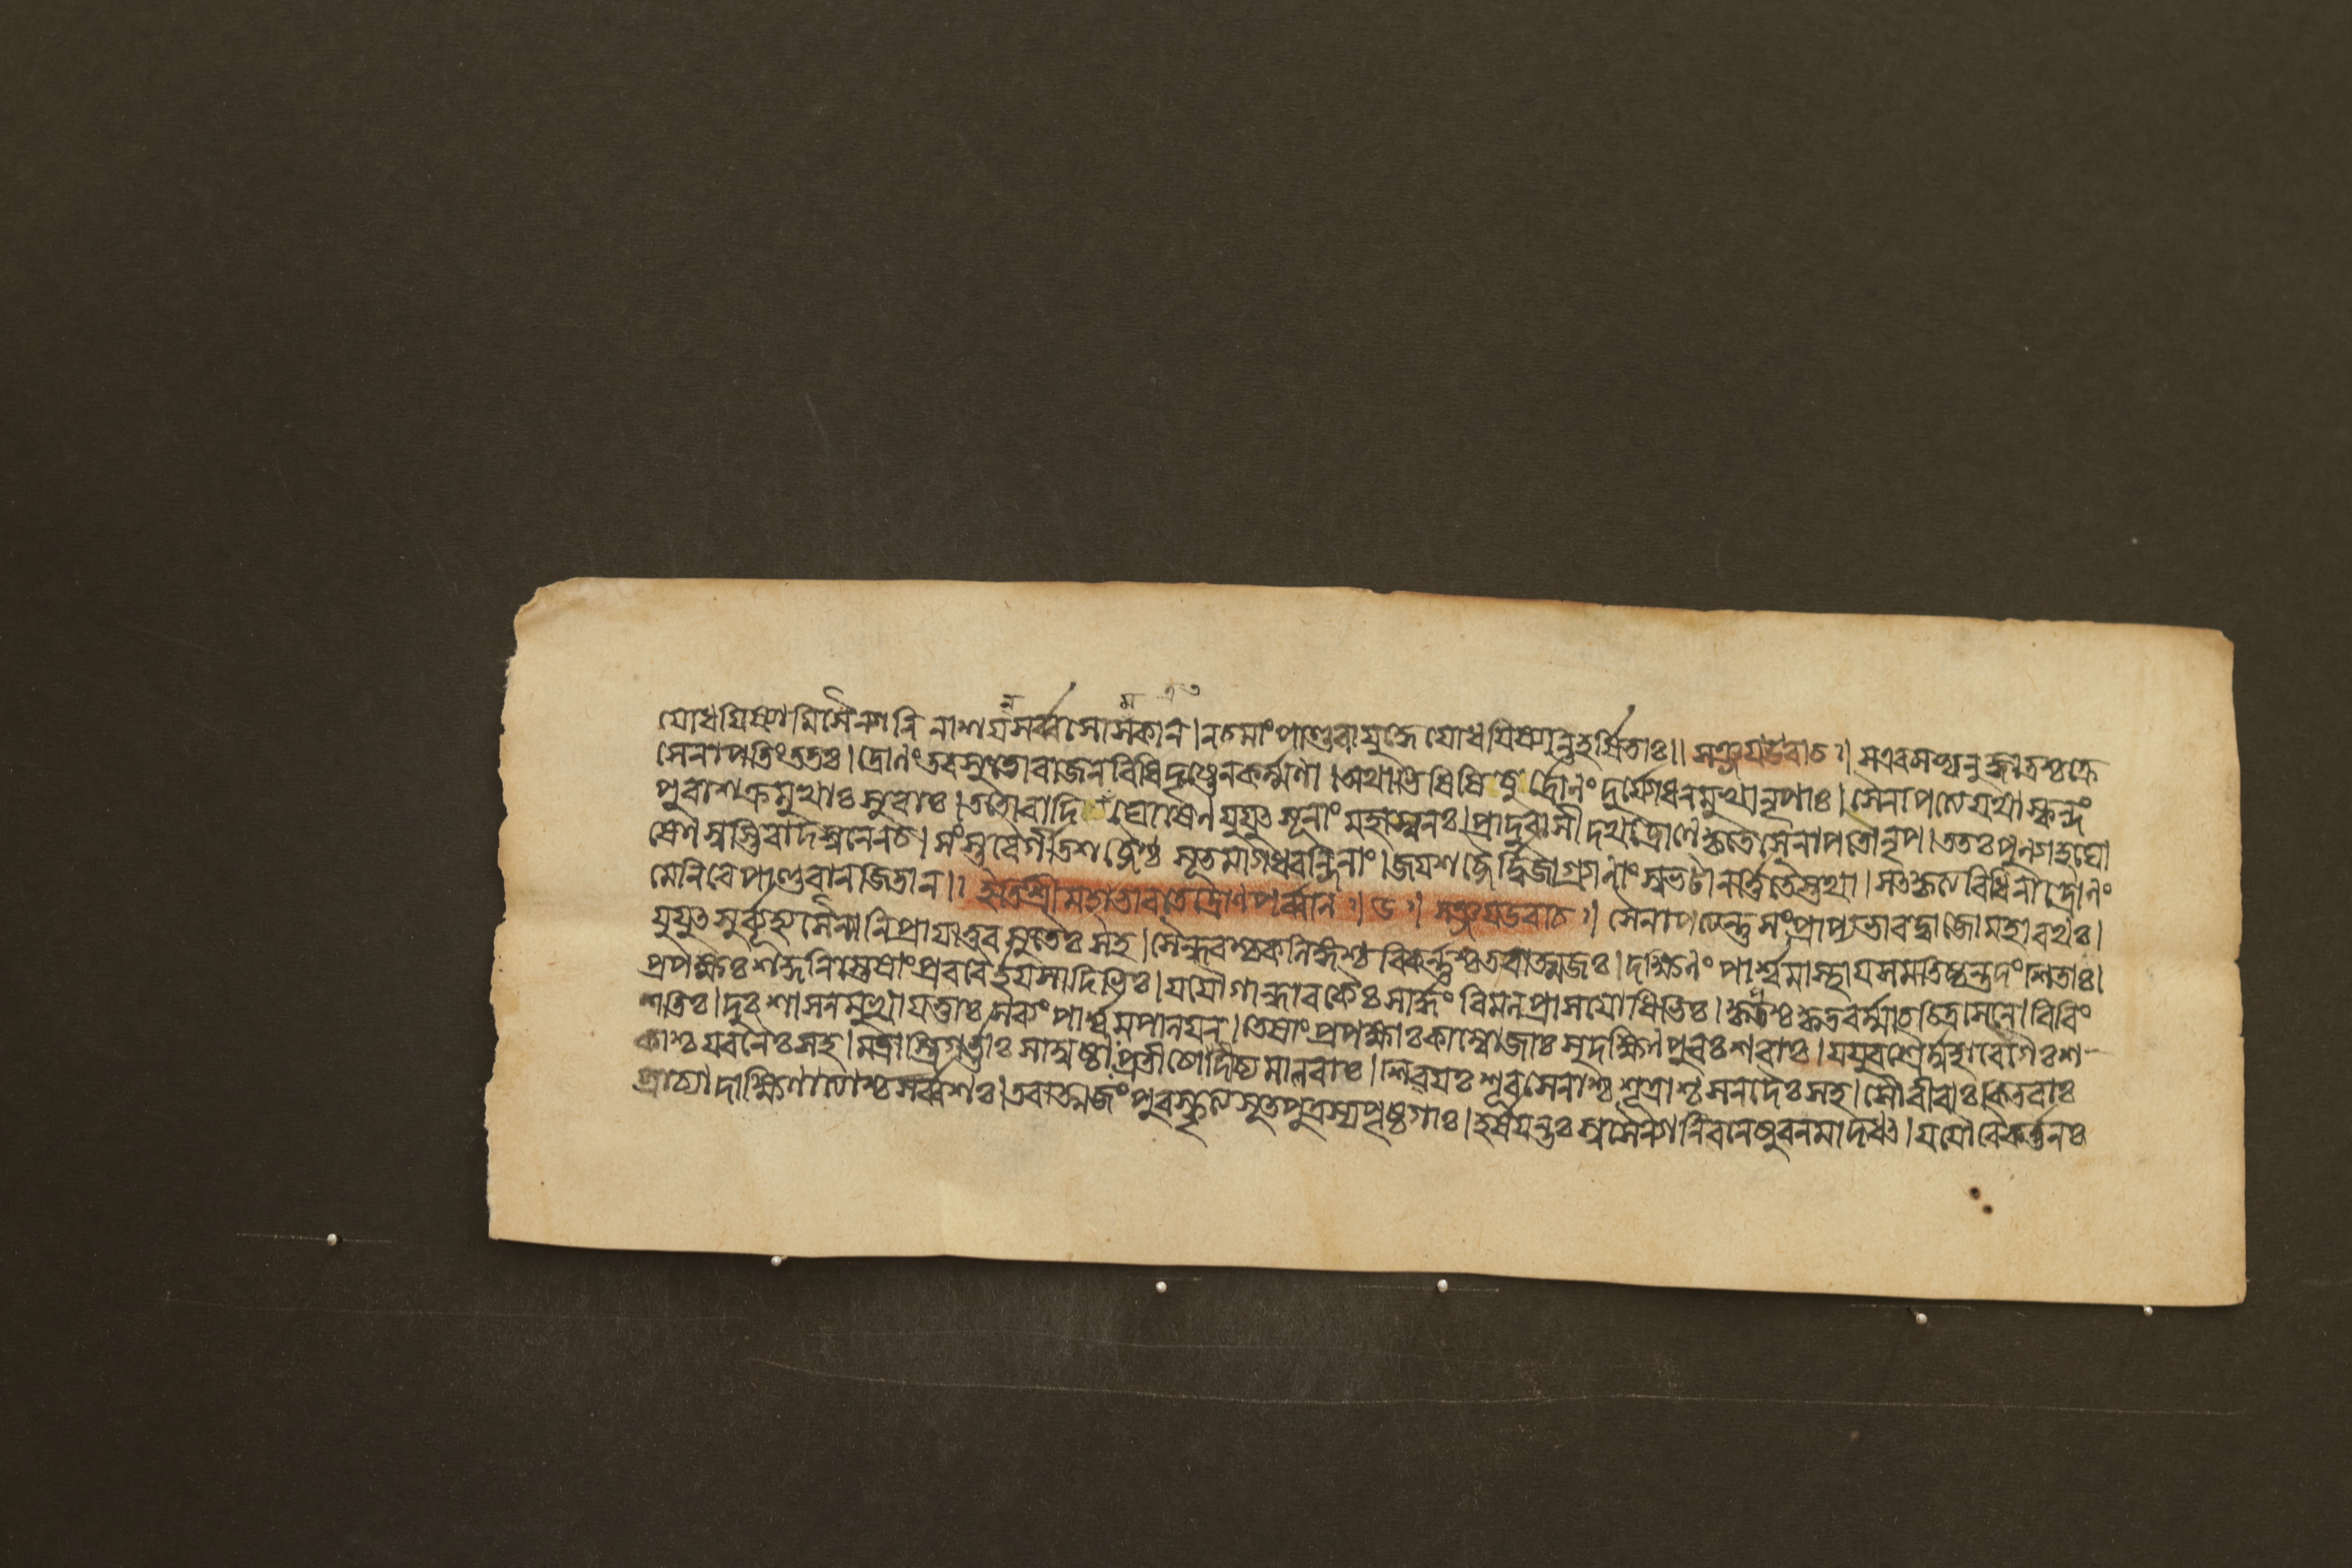 যোধয়িষ্যামি সৈন্যানি নাশয়ন্সর্ব্বসোমকান্। নচমাংপাণ্ডবাযুদ্ধে যোধয়িষ্যন্তিহর্ষিতাঃ॥ সঞ্জয়উবাচ।সএবমভ্যনুজ্ঞাতশ্চক্রে
সেনাপতিংততঃ। দ্রোণংতবসুতোরাজন্বিধিদৃষ্টেনকর্ম্মণা।অথাভিষিষিচুর্দ্রোণং দুর্যোধনমুখানৃপাঃ। সৈনাপত্যেযথাস্কন্দং
পুরাশক্রমুখাঃসুরাঃ।ততোবাদিত্রঘোষেণ যুযুৎসূনাং মহাস্বনঃ।প্রাদুরাসীদথদ্রোণেকৃতেসৈনাপতৌনৃপ।ততঃপুণ্যাহঘো
ষেণ স্বস্তিবাদস্বনেনচ। সংস্তবৈর্গীতশব্দৈশ্চ সূতমাগধবন্দিনাং।জয়শব্দৈর্দ্বিজাগ্রাণাং সুভটানর্ত্তিতৈস্তথা।সৎকৃত্যবিধিনাদ্রোণং
মেনিরে পাণ্ডবান্জিতান্॥ ইতিশ্রীমহাভারতেদ্রোণপর্ব্বণি।৬। সঞ্জয়উবাচ। সৈনাপত্যন্তুসংপ্রাপ্যভারদ্বাজোমহারথঃ।
যুযুৎসুর্ব্যূহ্যসৈন্যানিপ্রায়াত্তব সুতৈঃ সহ।সৈন্ধবশ্চকলিঙ্গশ্চ বিকর্ণশ্চতবাত্মজঃ।দক্ষিণং পার্শ্বমাস্থায়সমতিষ্ঠন্তদংশিতাঃ।
প্রপক্ষঃশকুনিস্তেষাংপ্রবরৈর্হয়সাদিভিঃ।যযৌগান্ধারকৈঃসার্দ্ধং বিমলপ্রাসযোধিভিঃ।কৃপশ্চকৃতবর্ম্মাচচিত্রসেনো বিবিং
শতিঃ।দুঃশাসনমুখাযত্তাঃসব্যং পার্শ্বমপালয়ন্।তেষাংপ্রপক্ষাঃকাম্বোজাঃসুদক্ষিণপুরঃসরাঃ।যযুরশ্বৈর্মহাবেগৈঃশ-
কাশ্চযবনৈঃসহ।মদ্রাস্ত্রিগর্ত্তাঃসাম্বষ্ঠাঃপ্রতীচ্যোদীচ্যমালবাঃ।শিবয়ঃশূরসেনাশ্চশূদ্রাশ্চমলদৈঃসহ।সৌবীরাঃকিতবাঃ
প্রাচ্যাদাক্ষিণাত্যাশ্চসর্ব্বশঃ।তবাত্মজং পুরস্কৃত্যসূতপুত্রস্যপৃষ্ঠগাঃ।হর্ষয়ন্তঃস্বসৈন্যানিবলেষুবলমাদধৎ।যযৌবৈকর্ত্তনঃ